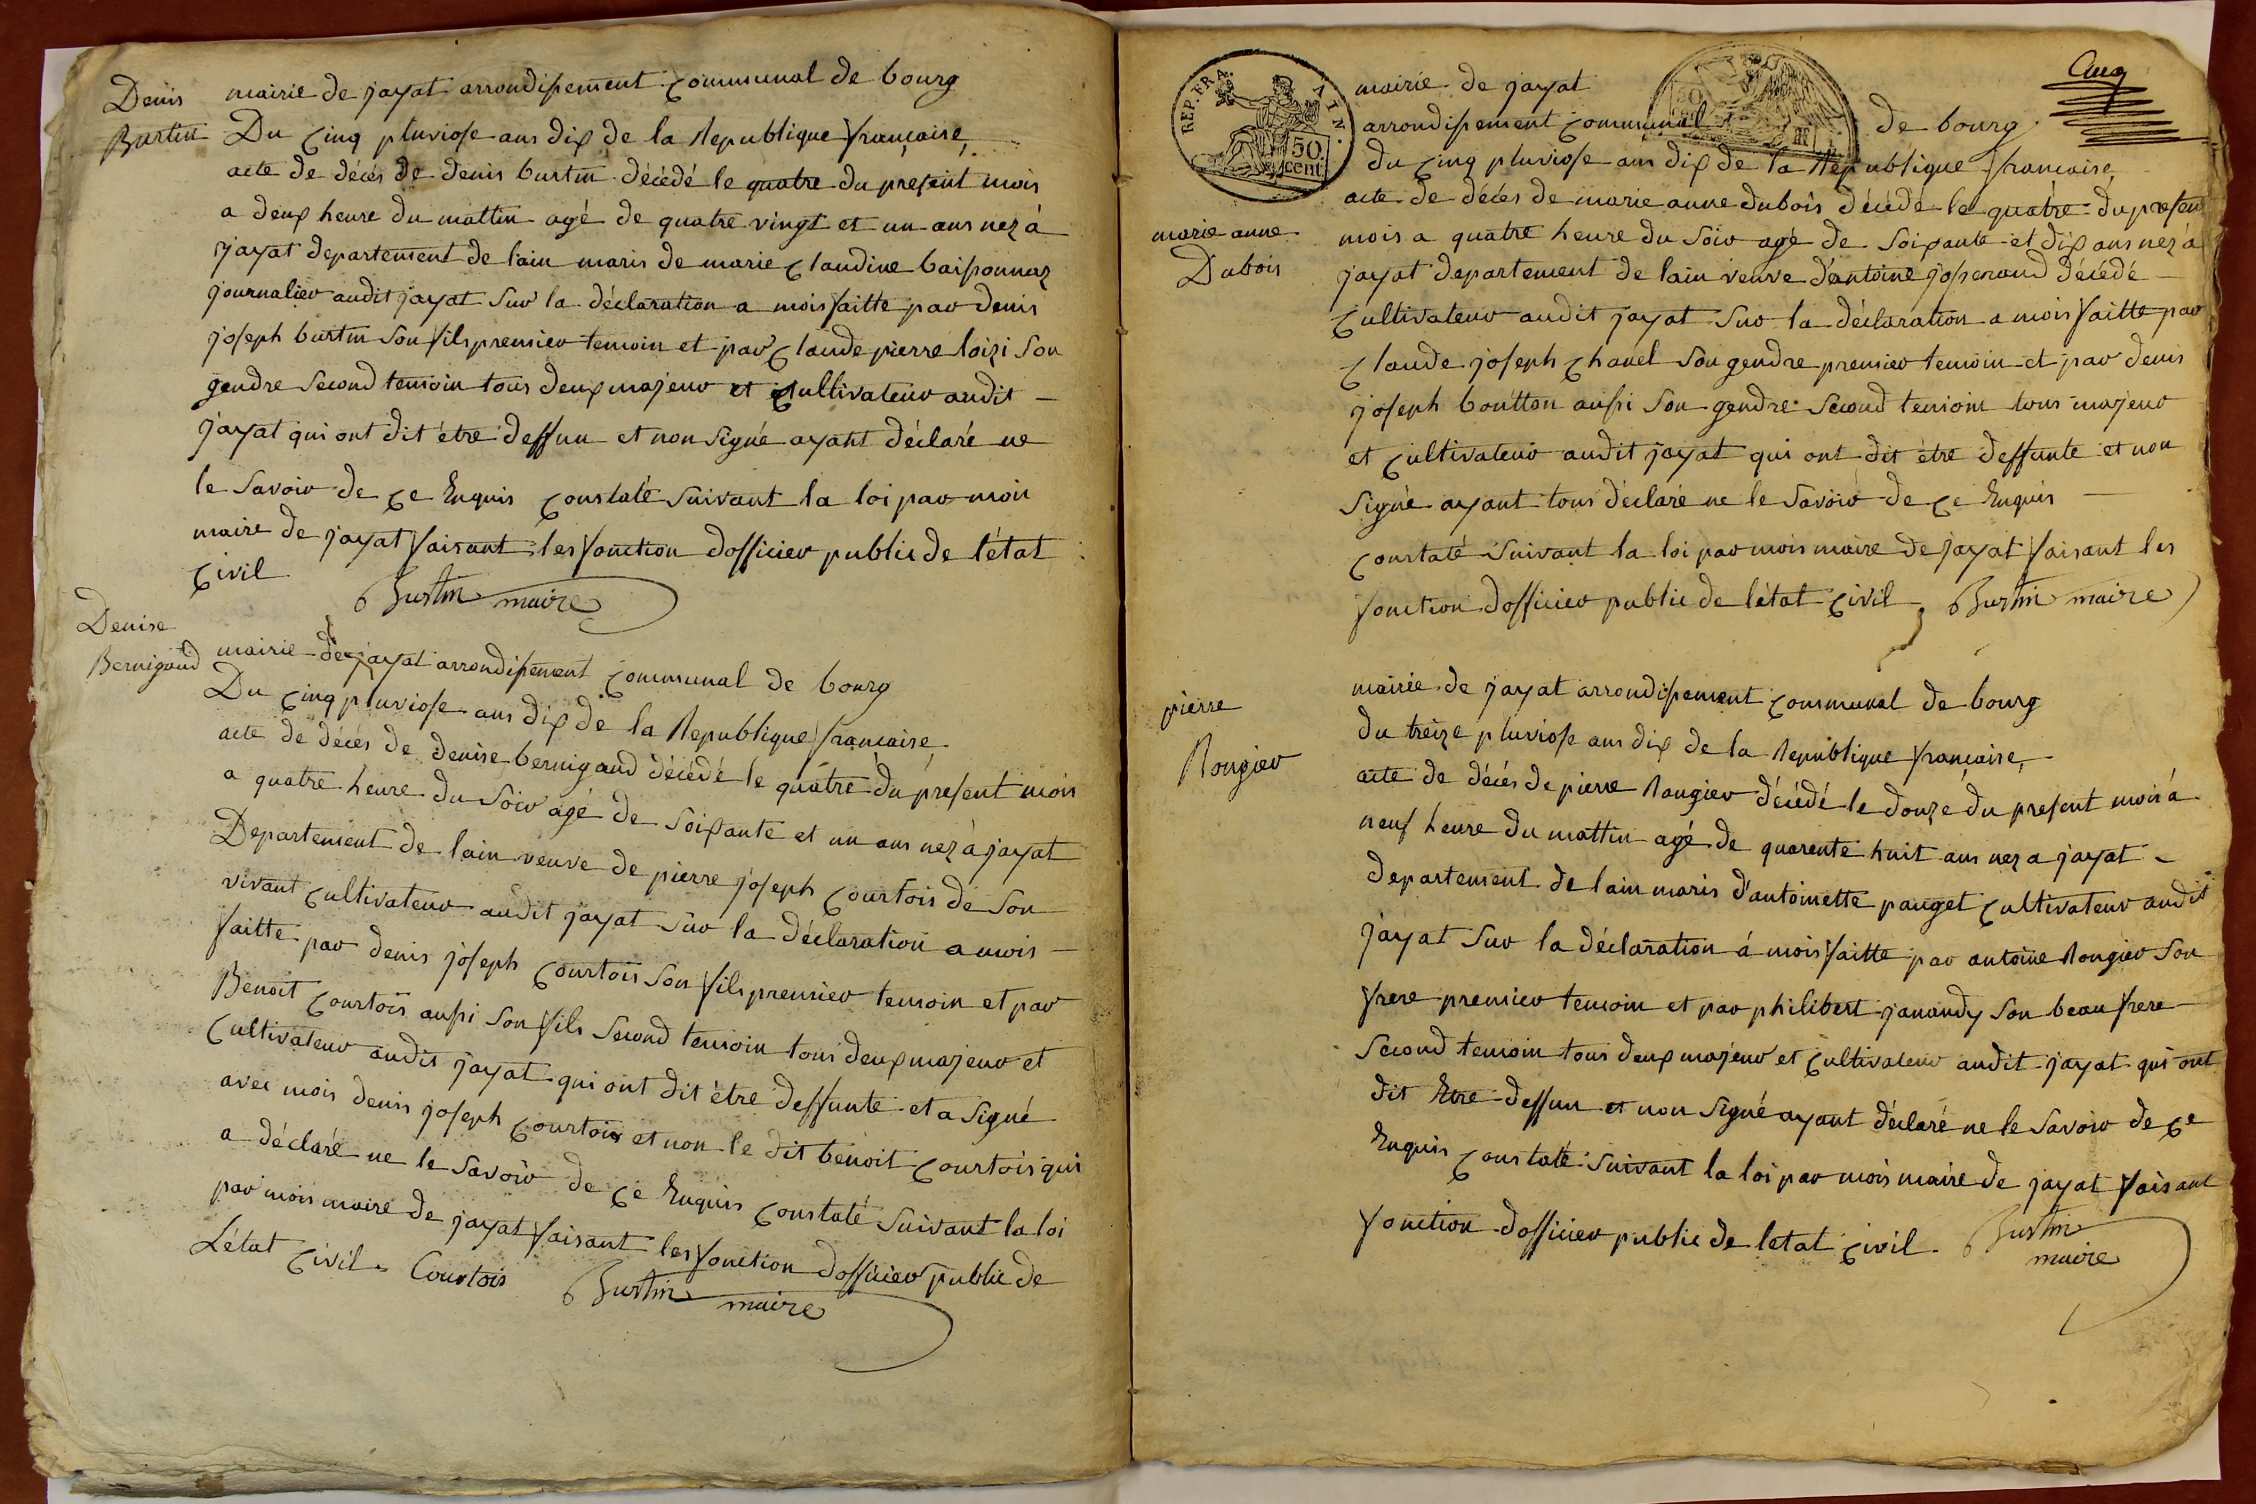 Denis
Burtin
mairie de jayat arrondissement communal de bourg
Du cinq pluviose ans dix de la Republique francaise,
acte de décés de denis burtin décédé le quatre du present mois
a deux heure du mattin agé de quatre vingt et un ans nez à
jayat departement de l'ain maris de marie claudine baissonnaz
journalier audit jayat sur la déclaration a mois faitte par denis
joseph burtin son fils premier temoin et par claude pierre loizi son
gendre second temoin tous deux majeur et cultivateur audit
jayat qui ont dit être deffun et non signé ayant déclaré ne
le savoir de ce enquis constaté suivant la loi par mois
maire de jayat faisant les fonction dofficier public de l'état
civil
Burtin maire
Denise
Bernigaud
mairie de jayat arrondissement communal de bourg
Du cinq pluviose ans dix de la Republique francaise.
acte de décés de denise bernigaud décédé le quatre du present mois
a quatre heure du soir agé de soixante et un ans nez à jayat
Departement de lain veuve de pierre joseph courtois de son
vivant cultivateur audit jayat sur la déclaration a mois
faitte par denis joseph courtois son fils premier temoin et par
Benoit courtois aussi son fils second temoin tous deux majeur et
cultivateur audit jayat qui ont dit être deffunte et a signé
avec mois denis joseph courtois et non le dit benoit courtois qui
a déclaré ne le savoir de ce enquis constaté suivant la loi
par mois maire de jayat faisant les fonction dofficier public de
L'état civil. Courtois
Burtin maire
REP. FRA. AIN.
50 cent
Cinq
mairie de jayat
arrondissement communal de bourg
du cinq pluviose ans dix de la Republique francaise,
marie anne
Dubois
acte de décés de marie anne dubois décédé le quatre du presen
mois a quatre heure du soir agé de soixante et dix ans nez à
jayat departement de lain veuve d'antoine josserand décédé
cultivateur audit jayat sur la déclaration a mois faitte par
claude joseph chanel son gendre premier temoin et par denis
joseph boutton aussi son gendre second temoin tous majeur
et cultivateur audit jayat qui ont dit être deffunte et non
signé ayant tous déclaré ne le savoir de ce enquis
constaté suivant la loi par mois maire de jayat faisant les
fonction dofficier public de l'état civil Burtin maire
pierre
Rougier
mairie de jayat arrondissement communal de bourg
du treize pluviose ans dix de la Republique francaise,
acte de décés de pierre Rougier décédé le douze du present mois à
neuf heure du mattin agé de quarente huit ans nez a jayat
departement de lain maris d'antoinette pauget cultivateur audit
jayat sur la déclaration à mois faitte par antoine Rougier son
frere premier temoin et par philibert janaudy son beau frere
second temoin tous deux majeur et cultivateur audit jayat qui ont
dit Etre deffun et non signé ayant déclaré ne le savoir de ce
enquis constaté suivant la loi par mois maire de jayat faisant
fonction dofficier public de letat civil. Burtin
maire